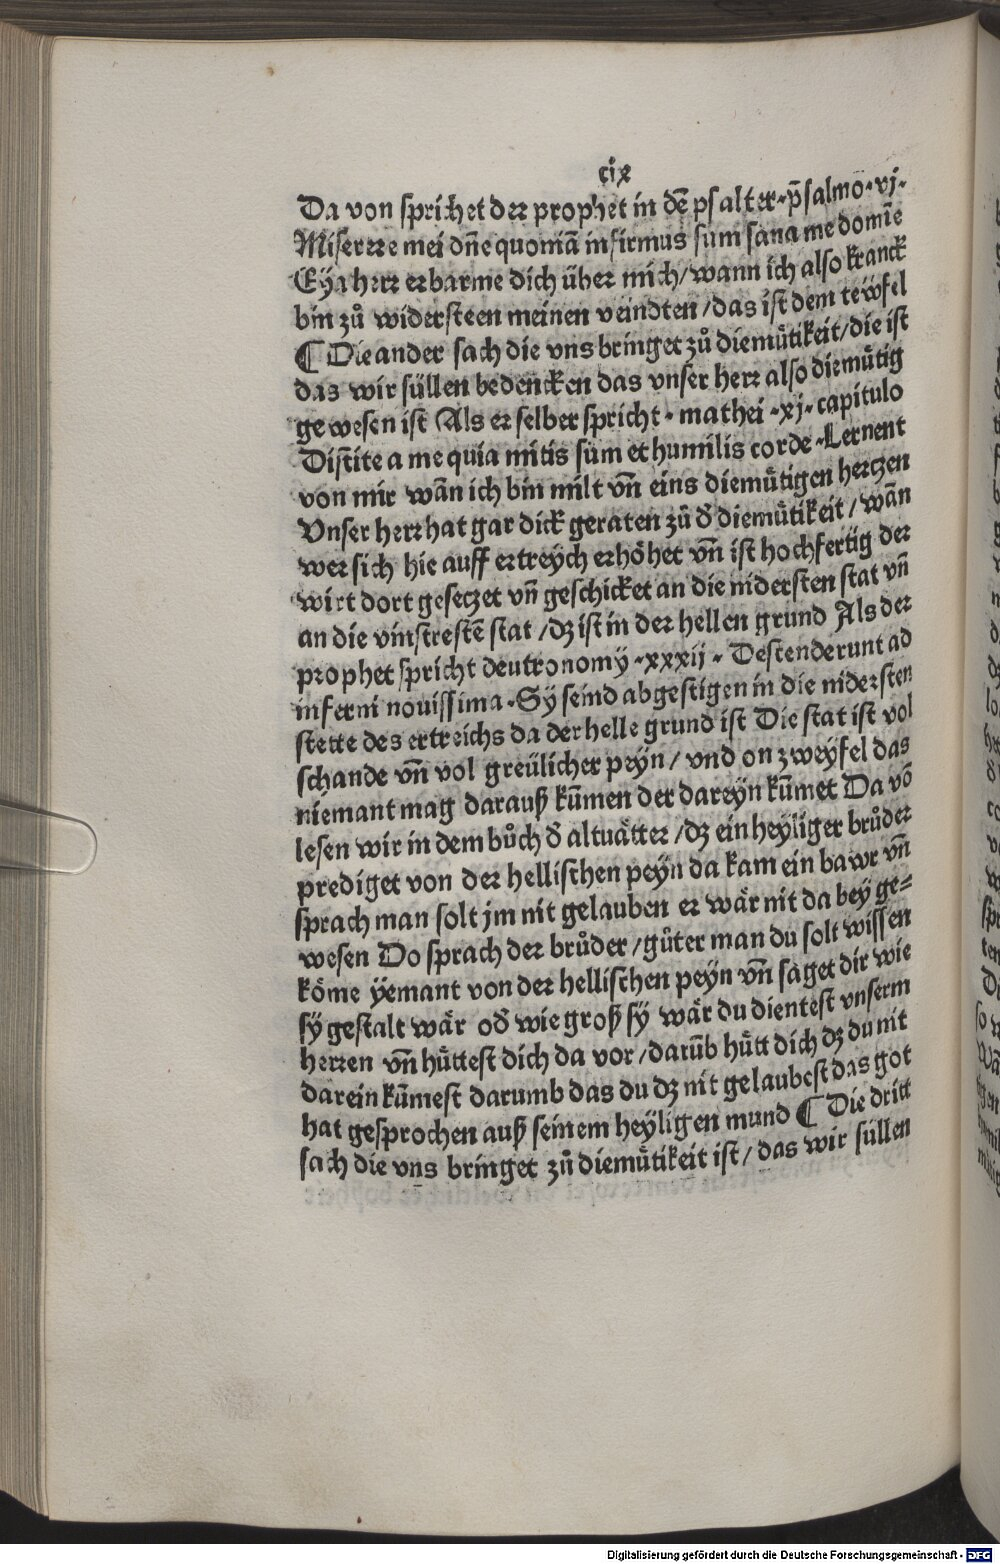 cix
Da von sprichet der prophet in dē psalter·p̄salmo·vj·
Misererre mei dn̄e quoniā infirmus sum sana me domīe
Eÿa herr erbarme dich über mich/wann ich also kranck
bin zů widersteen meinen veindten/das ist dem tewfel
¶ Die ander sach die vns bringet zů diemu̇tikeit/die ist
das wir süllen bedencken das vnser herr also diemu̇tig
gewesen ist Als er selber spricht·mathei·xj·capitulo
Discite a me quia mitis sum et humilis corde·Lernent
von mir wān ich bin milt vn̄ eins diemu̇tigen hertzen
Vnser herr hat gar dick geraten zů ď diemu̇tikeit/wān
wer sich hie auff ertreych erhöhet vn̄ ist hochfertig der
wirt dort gesetzet vn̄ geschicket an die nidersten stat vn̄
an die vinstrestē stat/dz ist in der hellen grund Als der
prophet spricht deutronomÿ·xxxij·Descenderunt ad
inferni nouissima·Sÿ seind abgestigen in die nidersten
stette des ertreichs da der helle grund ist Die stat ist vol
schande vn̄ vol greülicher peÿn/vnd on zweÿfel das
niemant mag darauß kūmen der dareÿn kūmet Da vō
lesen wir in dem bůch ď altuätter/dz ein heÿliger brůder
prediget von der hellischen peÿn da kam ein bawr vn̄
sprach man solt jm nit gelauben er wär nit da beÿ ge=
wesen Do sprach der brůder/gůter man du solt wissen
köme ÿemant von der hellischen peÿn vn̄ saget dir wie
sÿ gestalt wär oď wie groß sÿ wär du dientest vnserm
herren vn̄ hu̇ttest dich da vor/darūb hu̇tt dich dz du nit
darein kūmest darumb das du dz nit gelaubest das got
hat gesprochen auß seinem heÿligen mund ¶ Die dritt
sach die vns bringet zů diemu̇tikeit ist/das wir süllen
Digitalisierung gefördert durch die Deutsche Forschungsgemeinschaft - DFG